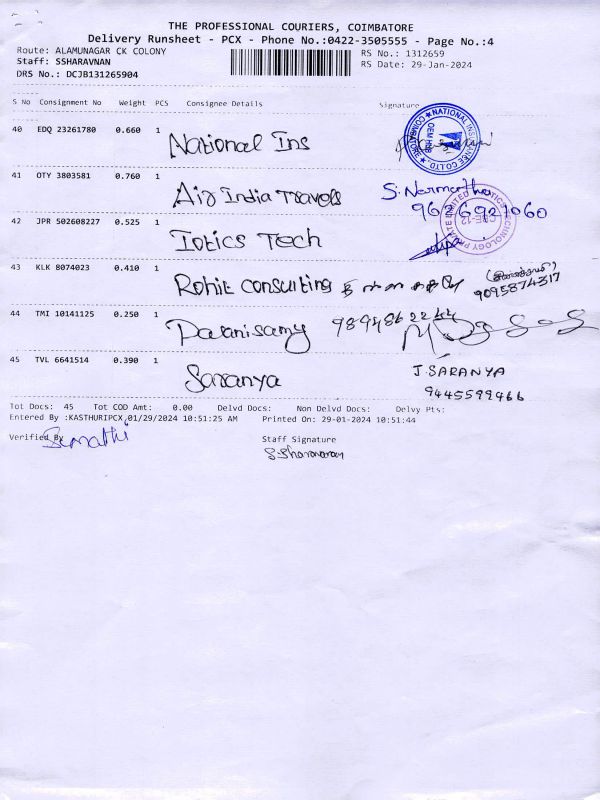 THE PROFESSIONAL COURIERS, COIMBATORE
Delivery Runsheet - PCX - Phone No.:0422-3505555 - Page No.:4
Route: ALAMUNAGAR CK COLONY
RS No.: 1312659
Staff: SSHARAVNAN
RS Date: 29-Jan-2024
DRS No.: DCJB131265904
S No Consignment No Weight PCS Consignee Details Signature
40 EDQ 23261780 0.660 1 National Ins
NATIONAL INSURANCE CO LTD COIMBATORE
41 OTY 3803581 0.760 1 Air India Travels
9626921060
42 JPR 502608227 0.525 1 Iotics Tech
CBE-12
43 KLK 8074023 0.410 1 Rohit Consulting
9095874317
44 TMI 10141125 0.250 1 Palanisamy
9894862244
45 TVL 6641514 0.390 1 Saranya
J.SARANYA
9445599466
Tot Docs: 45 Tot COD Amt: 0.00 Delvd Docs: Non Delvd Docs: Delvy Pts:
Entered By :KASTHURIPCX,01/29/2024 10:51:25 AM Printed On: 29-01-2024 10:51:44
Verified By Staff Signature